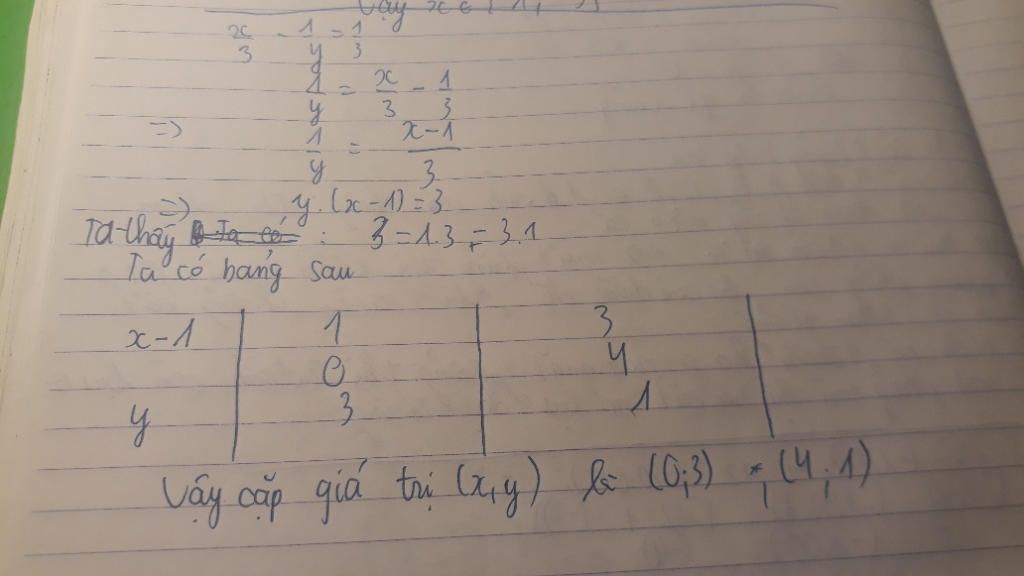 Vậy x ∈
x/3 - 1/y = 1/3
1/y = x/3 - 1/3
=> 1/y = (x-1)/3
=> y.(x-1) = 3
Ta thấy Ta có : 3 = 1.3 = 3.1
Ta có bảng sau
x-1 1 3
0 4
y 3 1
Vậy cặp giá trị (x,y) là (0;3) ; (4;1)